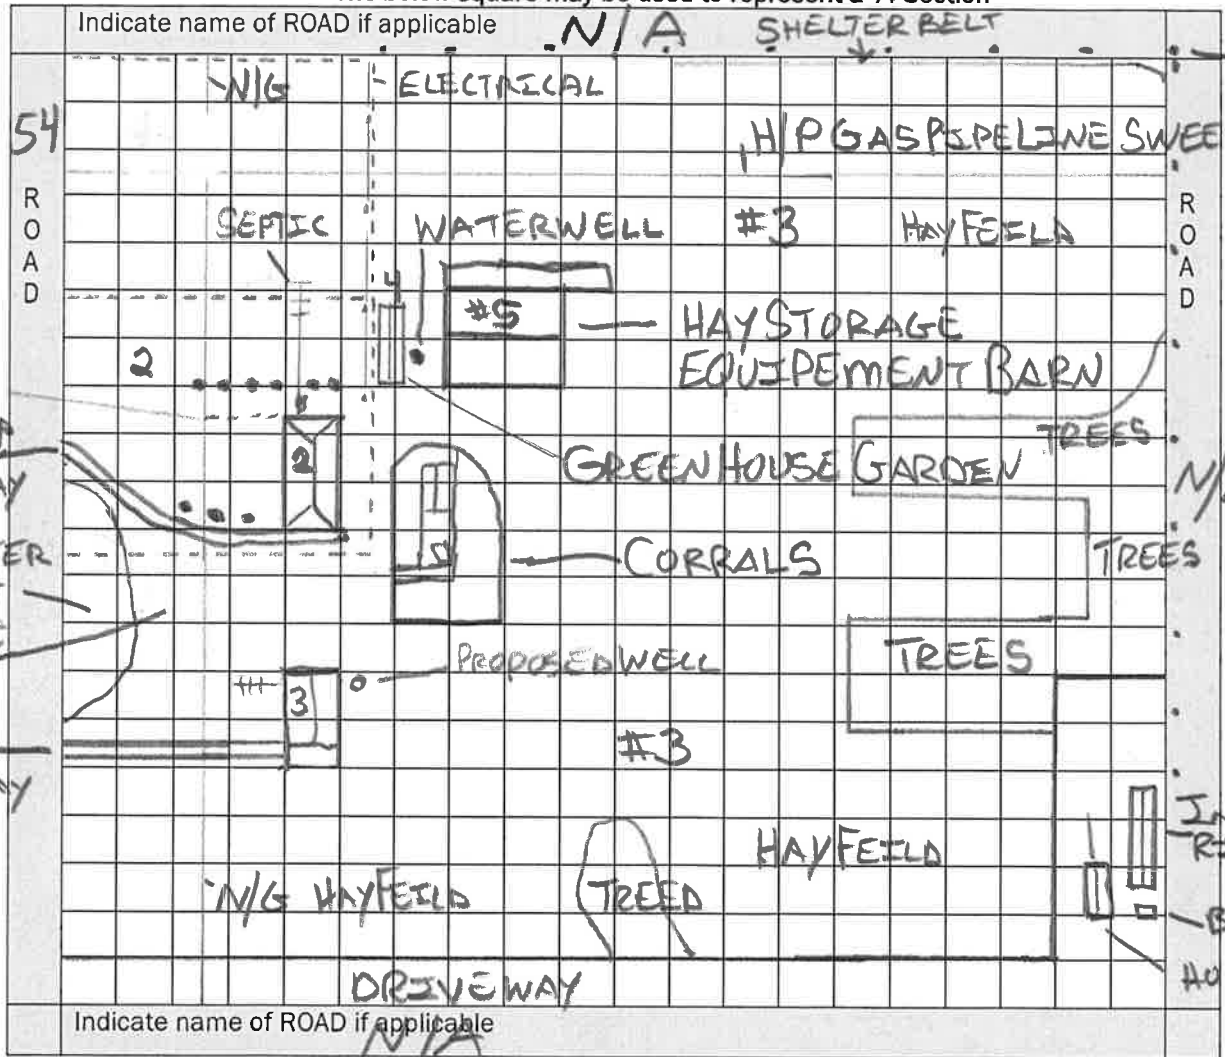 Indicate name of ROAD if applicable N/A SHELTERBELT
N/G ELECTRICAL
54
H/P GAS PIPELINE SWEE
ROAD
ROAD
SEPTIC WATERWELL #3 HAYFEILD
4
#5 HAY STORAGE
EQUIPEMENT BARN
2
TREES
2
GREENHOUSE GARDEN
AY
N/
ER
CORRALS TREES
TREES
PROPOSED WELL
3
#3
Y
HAYFEILD
N/G HAYFEILD TREED
DRIVEWAY
HO
Indicate name of ROAD if applicable
N/A